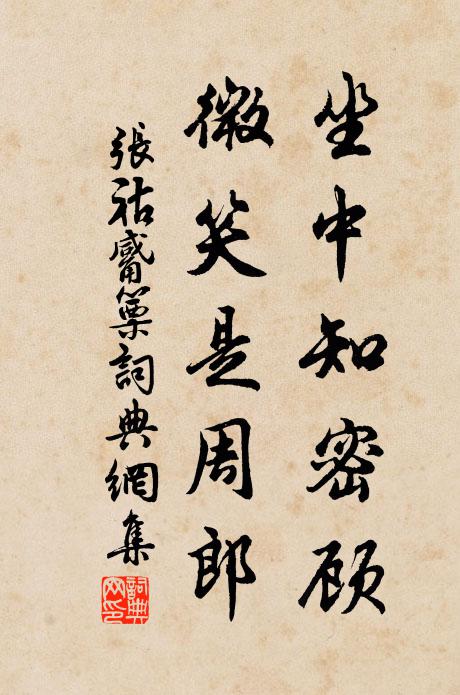 坐中知密顧
微笑是周郎
張祜觱篥詞典網集
詞典网印